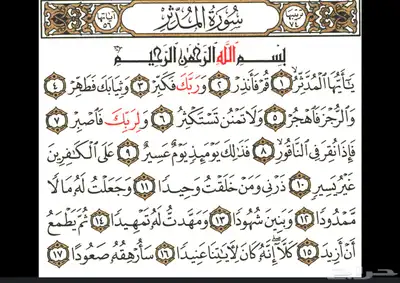 ترتيبها ٧٤ سُورَةُ المُدَّثِّر آياتها ٥٦
بِسْمِ اللَّهِ الرَّحْمَٰنِ الرَّحِيمِ
يَٰٓأَيُّهَا الْمُدَّثِّرُ ١ قُمْ فَأَنذِرْ ٢ وَرَبَّكَ فَكَبِّرْ ٣ وَثِيَابَكَ فَطَهِّرْ ٤
وَالرُّجْزَ فَاهْجُرْ ٥ وَلَا تَمْنُن تَسْتَكْثِرُ ٦ وَلِرَبِّكَ فَاصْبِرْ ٧
فَإِذَا نُقِرَ فِي النَّاقُورِ ٨ فَذَٰلِكَ يَوْمَئِذٍ يَوْمٌ عَسِيرٌ ٩ عَلَى الْكَٰفِرِينَ
غَيْرُ يَسِيرٍ ١٠ ذَرْنِي وَمَنْ خَلَقْتُ وَحِيدًا ١١ وَجَعَلْتُ لَهُۥ مَالًا
مَّمْدُودًا ١٢ وَبَنِينَ شُهُودًا ١٣ وَمَهَّدتُّ لَهُۥ تَمْهِيدًا ١٤ ثُمَّ يَطْمَعُ
أَنْ أَزِيدَ ١٥ كَلَّآ ۖ إِنَّهُۥ كَانَ لِءَايَٰتِنَا عَنِيدًا ١٦ سَأُرْهِقُهُۥ صَعُودًا ١٧
حراج